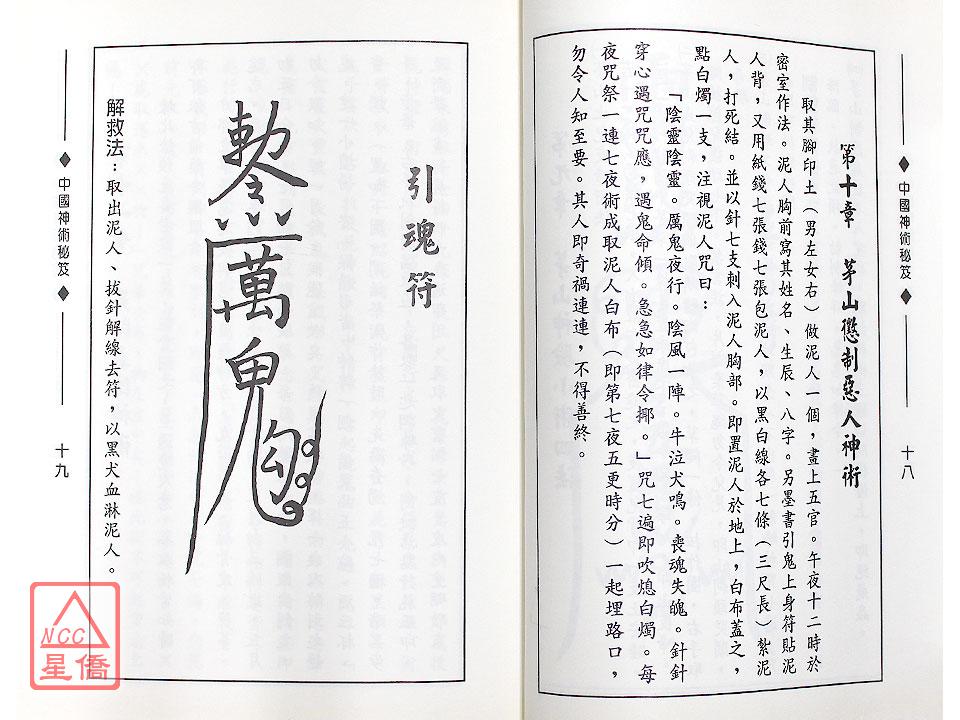 中國神術秘笈
十八
第十章　茅山懲制惡人神術
取其腳印土（男左女右）做泥人一個，畫上五官。午夜十二時於
密室作法。泥人胸前寫其姓名、生辰、八字。另墨書引鬼上身符貼泥
人背，又用紙錢七張錢七張包泥人，以黑白線各七條（三尺長）紮泥
人，打死結。並以針七支刺入泥人胸部。即置泥人於地上，白布蓋之，
點白燭一支，注視泥人咒曰：
「陰靈陰靈。厲鬼夜行。陰風一陣。牛泣犬鳴。喪魂失魄。針針
穿心遇咒咒應，遇鬼命傾。急急如律令揶。」咒七遍即吹熄白燭。每
夜咒祭一連七夜術成取泥人白布（即第七夜五更時分）一起埋路口，
勿令人知至要。其人即奇禍連連，不得善終。
引魂符
勅令
萬鬼
勾
解救法：取出泥人、拔針解線去符，以黑犬血淋泥人。
中國神術秘笈
十九
NCC
星僑